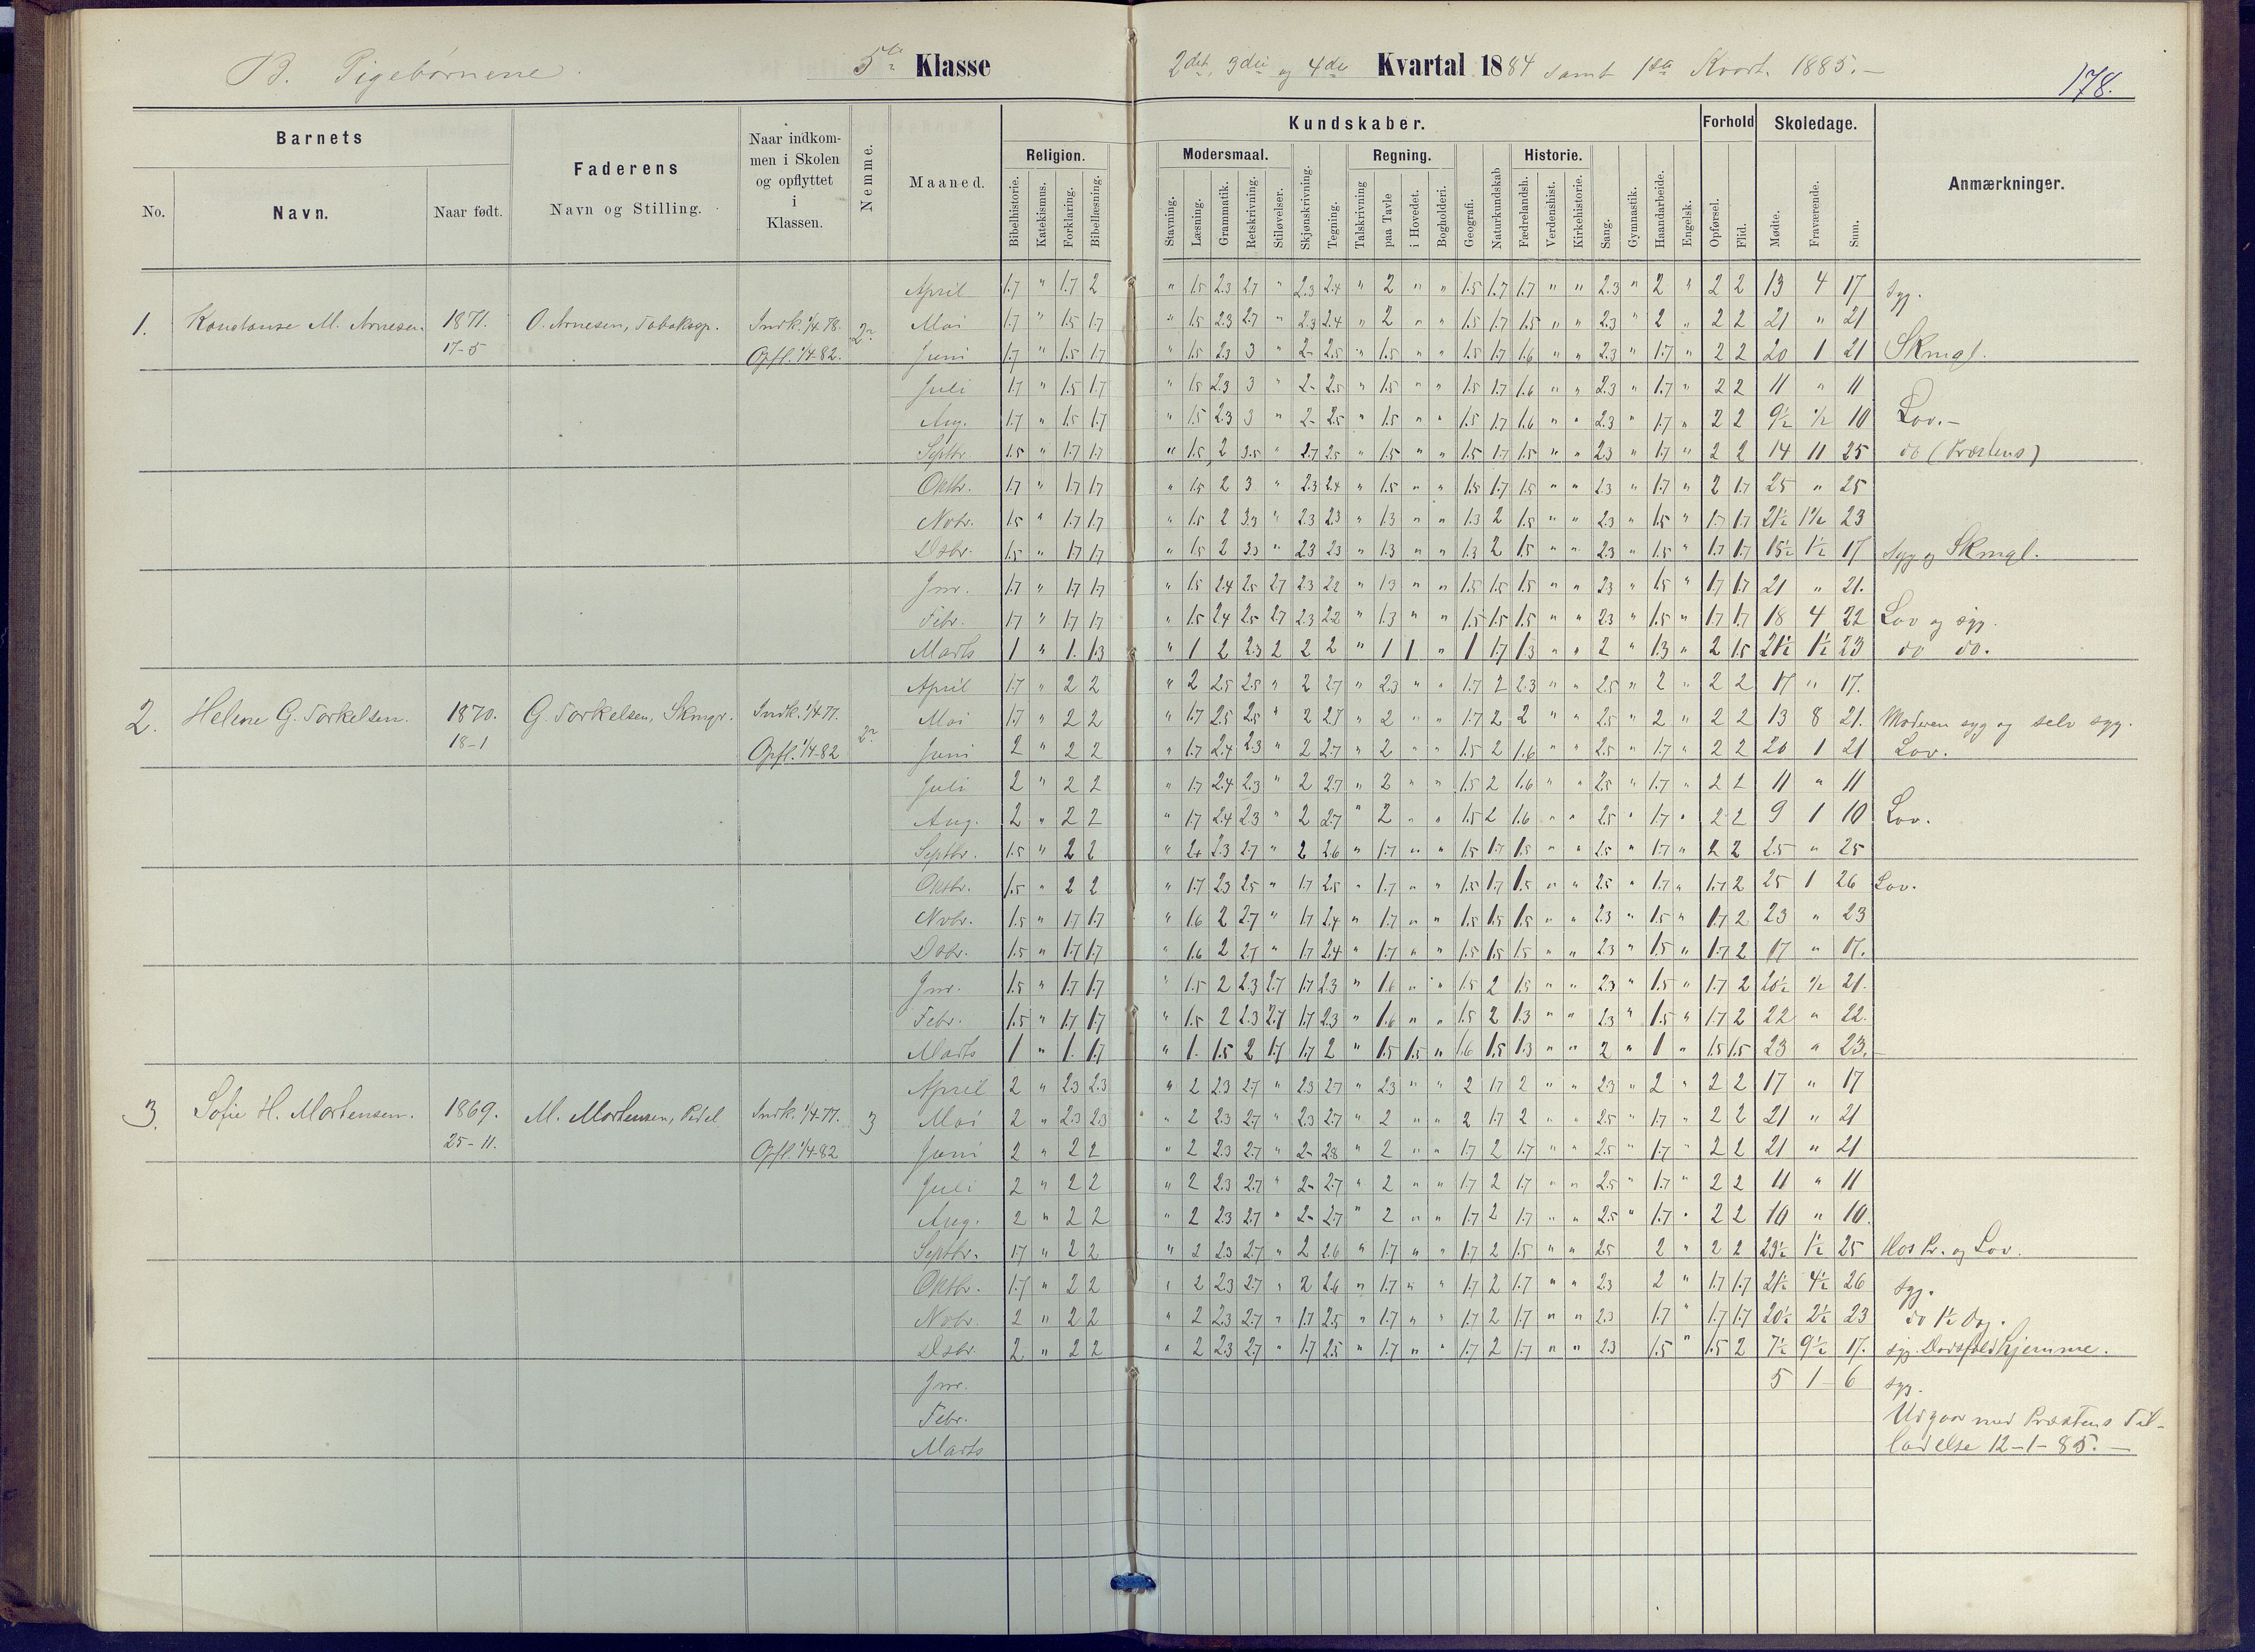 B. Pigebørnene. 5te Klasse 2det, 3die og 4de Kvartal 1884 samt 1ste Kvart. 1885.—
178.
Barnets
No. Navn. Naar født.
Faderens
Navn og Stilling.
Naar indkom-
men i Skolen
og opflyttet
i
Klassen.
Nemme.
Maaned.
Kundskaber.
Religion.
Bibelhistorie. Katekismus. Forklaring. Bibellæsning.
Modersmaal.
Stavning. Læsning. Grammatik. Retskrivning. Stiløvelser.
Skjønskrivning. Tegning.
Regning.
Talskrivning paa Tavle i Hovedet. Bogholderi.
Geografi. Naturkundskab
Historie.
Fædrelandsh. Verdenshist. Kirkehistorie.
Sang. Gymnastik. Haandarbeide. Engelsk.
Forhold
Opførsel. Flid.
Skoledage.
Mødte. Fraværende. Sum.
Anmærkninger.
April 1.7 " 1.7 2 " 1.5 2.3 2.7 " 2.3 2.4 " 2 " " 1.5 1.7 1.7 " " 2.3 " 2 " 2 2 13 4 17 syg.
1. Konstanse M. Arnesen 1871. O. Arnesen, Tobaksp. Indk. 1/4 78. 2? Mai 1.7 " 1.5 1.7 " 1.5 2.3 2.7 " 2.3 2.4 " 2 " " 1.5 1.7 1.5 " " 2.3 " 2 " 2 2 21 " 21
17-5 Opfl. 1/4-82. Juni 1.7 " 1.5 1.7 " 1.5 2.3 3 " 2- 2.5 " 1.5 " " 1.5 1.7 1.6 " " 2.3 " 1.7 " 2 2 20 1 21 Skmgl.
Juli 1.7 " 1.5 1.7 " 1.5 2.3 3 " 2- 2.5 " 1.5 " " 1.5 1.7 1.6 " " 2.3 " 1.7 " 2 2 11 " 11
Aug. 1.7 " 1.5 1.7 " 1.5 2.3 3 " 2- 2.5 " 1.5 " " 1.5 1.7 1.6 " " 2.3 " 1.7 " 2 2 9½ ½ 10 Lov.—
Septbr. 1.5 " 1.7 1.7 " 1.5 2 3.5 " 2.7 2.5 " 1.5 " " 1.5 1.7 1.5 " " 2.3 " 1.7 " 2 2 14 11 25 do (Præstens)
Oktbr. 1.7 " 1.7 1.7 " 1.5 2 3 " 2.3 2.4 " 1.5 " " 1.5 1.7 1.5 " " 2.3 " 1.7 " 2 1.7 25 " 25
Novbr. 1.5 " 1.7 1.7 " 1.5 2 3.3 " 2.3 2.3 " 1.3 " " 1.3 2 1.5 " " 2.3 " 1.5 " 1.7 1.7 21½ 1½ 23
Dsbr. 1.5 " 1.7 1.7 " 1.5 2 3.3 " 2.3 2.3 " 1.3 " " 1.3 2 1.5 " " 2.3 " 1.5 " 1.7 1.7 15½ 1½ 17 syg og Skmgl.
Jnr. 1.7 " 1.7 1.7 " 1.5 2.4 2.5 2.7 2.3 2.2 " 1.3 " " 1.5 1.5 1.5 " " 2.3 " 1.5 " 1.7 1.7 21 " 21.
Febr. 1.7 " 1.7 1.7 " 1.5 2.4 2.5 2.7 2.3 2.2 " 1.3 " " 1.5 1.5 1.5 " " 2.3 " 1.5 " 1.7 1.7 18 4 22 Lov og syg.
Marts 1 " 1. 1.3 " 1 2 2.3 2 2 2 " 1 1 " 1 1.7 1.3 " " 2 " 1.3 " 2 1.5 21½ 1½ 23 do do.
April 1.7 " 2 2 " 2 2.5 2.5 " 2 2.7 " 2.3 " " 1.7 2 2.3 " " 2.5 " 2 " 2 2 17 " 17.
2. Helene G. Torkelsen. 1870. G. Torkelsen, Skmgr. Indk. 1/4 77. 2? Mai 1.7 " 2 2 " 1.7 2.5 2.5 " 2 2.7 " 2 " " 1.7 2 2 " " 2.5 " 2 " 2 2 13 8 21. Moderen syg og selv syg.
18-1 Opfl. 1/4-82 Juni 2 " 2 2 " 1.7 2.4 2.3 " 2 2.7 " 2 " " 1.5 2 1.6 " " 2.5 " 1.7 " 2 2 20 1 21 Lov.
Juli 2 " 2 2 " 1.7 2.4 2.3 " 2 2.7 " 2 " " 1.5 2 1.6 " " 2.5 " 1.7 " 2 2 11 " 11
Aug. 2 " 2 2 " 1.7 2.4 2.3 " 2 2.7 " 2 " " 1.5 2 1.6 " " 2.5 " 1.7 " 2 2 9 1 10 Lov.
Septbr. 1.5 " 2 2 " 2+ 2.3 2.7 " 2 2.6 " 1.7 " " 1.5 1.7 1.5 " " 2.5 " 1.7 " 2 2 25 " 25
Oktbr. 1.5 " 2 2 " 1.7 2.3 2.5 " 1.7 2.5 " 1.7 " " 1.5 1.7 1.5 " " 2.5 " 1.7 " 1.7 2 25 1 26 Lov.
Nvbr. 1.5 " 1.7 1.7 " 1.6 2 2.7 " 1.7 2.4 " 1.7 " " 1.5 1.5 1.5 " " 2.3 " 1.5 " 1.7 2 23 " 23
Dsbr. 1.5 " 1.7 1.7 " 1.6 2 2.7 " 1.7 2.4 " 1.7 " " 1.5 1.5 1.5 " " 2.3 " 1.5 " 1.7 2 17 " 17.
Jnr. 1.5 " 1.7 1.7 " 1.5 2 2.3 2.7 1.7 2.3 " 1.6 " " 1.5 2 1.5 " " 2.3 " 1.5 " 1.7 2 20½ ½ 21.
Febr. 1.5 " 1.7 1.7 " 1.5 2 2.3 2.7 1.7 2.3 " 1.6 " " 1.5 2 1.3 " " 2.3 " 1.5 " 1.7 2 22 " 22.
Marts 1 " 1. 1.7 " 1. 1.5 2 1.7 1.7 2 " 1.5 1.5 " 1.6 1.5 1.3 " " 2 " 1 " 1.5 1.5 23 " 23.
April 2 " 2.3 2.3 " 2 2.3 2.7 " 2.3 2.7 " 2.3 " " 2 1.7 2 " " 2.3 " 2 " 2 2 17 " 17
3. Sofie H. Mortensen. 1869. M. Mortensen, Pedel Indk. 1/4 77. 3 Mai 2 " 2.3 2.3 " 2 2.3 2.7 " 2.3 2.7 " 2 " " 2 1.7 2 " " 2.5 " 1.7 " 2 2 21 " 21
25-11. Opfl. 1/4-82 Juni 2 " 2 2 " 2 2.3 2.7 " 2- 2.8 " 2 " " 1.7 2 1.7 " " 2.5 " 1.7 " 2 2 21 " 21
Juli 2 " 2 2 " 2 2.3 2.7 " 2- 2.7 " 2 " " 1.7 2 1.7 " " 2.5 " 1.7 " 2 2 11 " 11
Aug. 2 " 2 2 " 2 2.3 2.7 " 2- 2.7 " 2 " " 1.7 2 1.7 " " 2.5 " 1.7 " 2 2 10 " 10.
Septbr. 1.7 " 2 2 " 2 2.3 2.7 " 2 2.6 " 1.7 " " 1.7 2 1.5 " " 2.5 2 " 2 2 23½ 1½ 25 Hos Pr. og Lov.
Oktbr. 1.7 " 2 2 " 2 2.3 2.7 " 2 2.6 " 1.7 " " 1.7 2 1.7 " " 2.3 2 " 1.7 1.7 21½ 4½ 26 syg.
Nvbr. 2 " 2 2 " 2 2.3 2.7 " 1.7 2.5 " 1.7 " " 1.7 2 1.7 " " 2.3 1.7 " 1.7 1.7 20½ 2½ 23 do 1½ Dag.
Dsbr. 2 " 2 2 " 2 2.3 2.7 " 1.7 2.5 " 1.7 " " 1.7 2 1.7 " " 2.3 1.5 " 1.5 2 7½ 9½ 17. syg. Dødsfald hjemme.
Jnr. 5 1 6 syg.
Febr. Udgaar med Præstens Til-
Marts ladelse 12-1-85.—